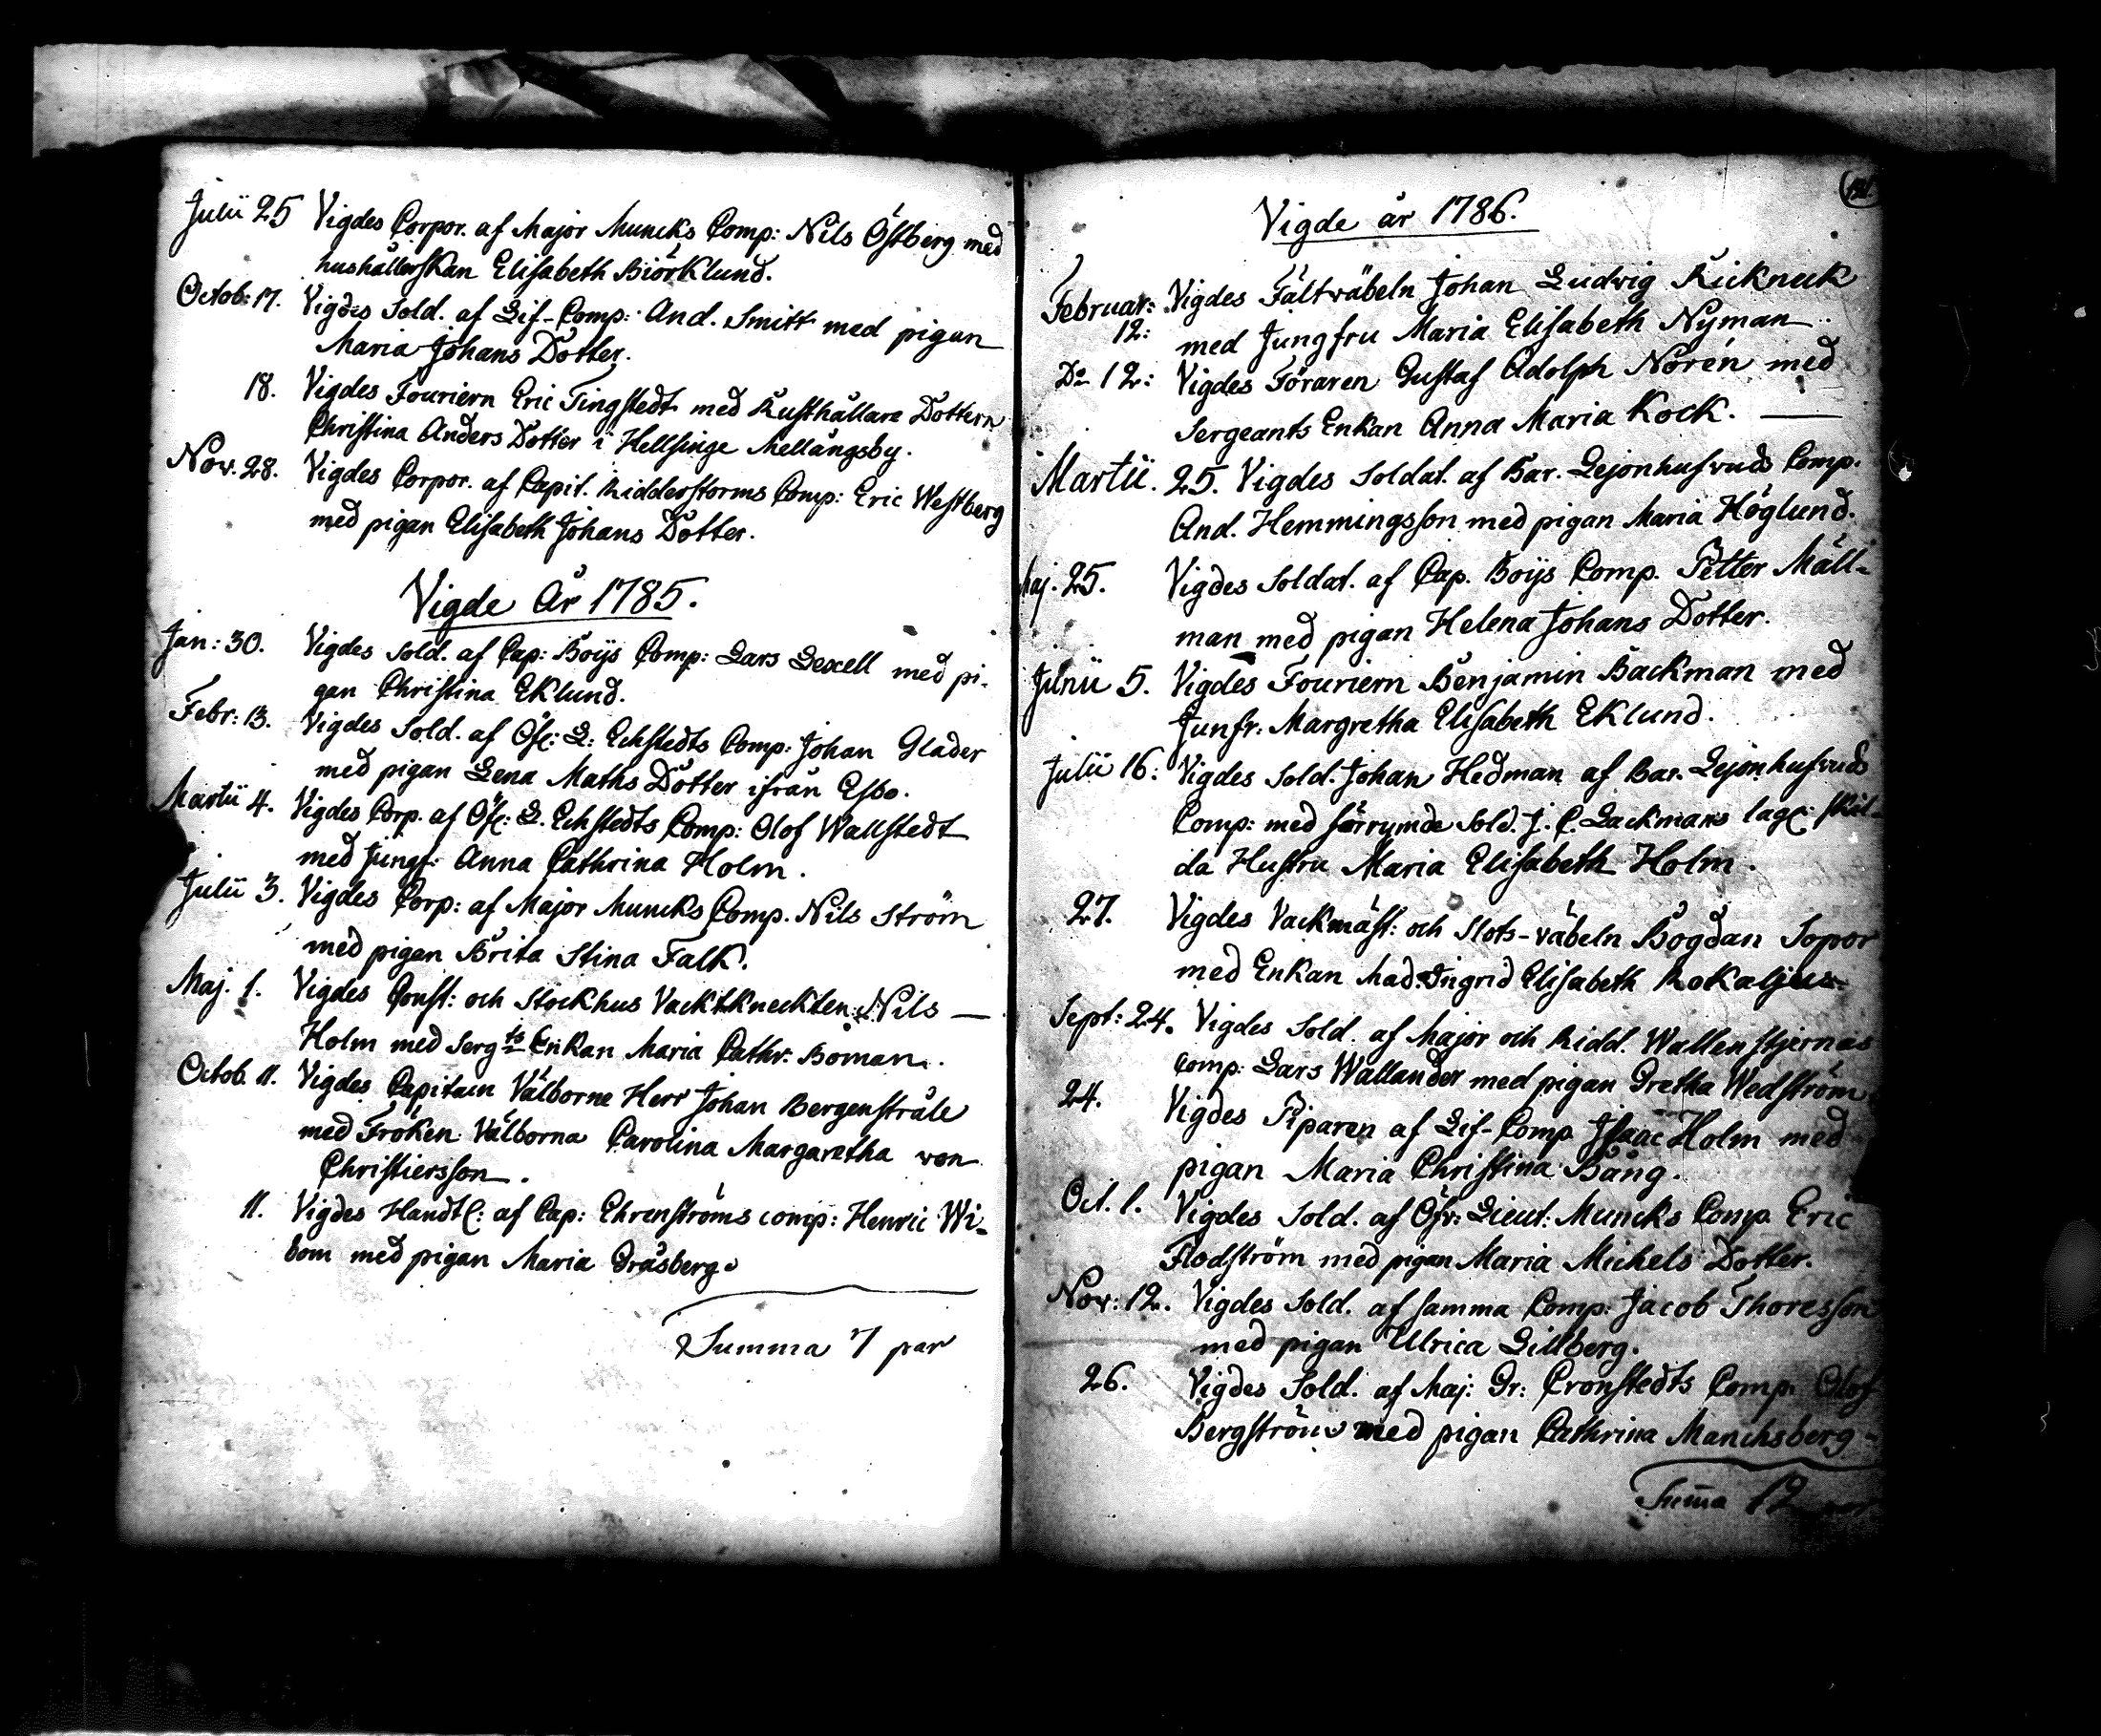 Julii 25 Vigdes Corpor. af Major Muncks Comp: Nils Östberg med
hushållerskan Elisabeth Biörklund.
Octob: 17. Vigdes Sold. af Lif-Comp: And. Smitt med pigan
Maria Johans Dotter.
18. Vigdes Fouriern Eric Tingstedt med Rusthållare Dottern
Christina Anders Dotter i Hellsinge Mellungsby.
Nov. 28. Vigdes Corpor. af Capit. Ridderstorms Comp: Eric Westberg
med pigan Elisabeth Johans Dotter.
Vigde År 1785.
Jan: 30. Vigdes Sold. af Cap: Boijs Comp: Lars Lexell med pi-
gan Christina Eklund.
Febr: 13. Vigdes Sold. af Öf: L: Echstedts Comp: Johan Glader
med pigan Lena Maths Dotter ifrån Esbo.
Martii 4. Vigdes Corp. af Öf: L. Echstedts Comp: Olof Wallstedt
med Jungf: Anna Cathrina Holm.
Julii 3. Vigdes Corp: af Major Muncks Comp. Nils Ström
med pigan Brita Stina Falk.
Maj. 1. Vigdes Const: och Stockhus Vacktkneckten Nils —
Holm med Serg:ts Enkan Maria Cathr: Boman.
Octob. 11. Vigdes Capitain Välborne Herr Johan Bergenstråle
med Fröken Välborna Carolina Margaretha von
Christiersson.
11. Vigdes Handtl: af Cap: Ehrenströms comp: Henric Wi-
bom med pigan Maria Gräsberg.
Summa 7 par
Vigde år 1786.
Februar: Vigdes Fältväbeln Johan Ludvig Kickneck
12: med Jungfru Maria Elisabeth Nyman
Do 12: Vigdes Föraren Gustaf Adolph Norén med
Sergeants Enkan Anna Maria Kock. —
Martii. 25. Vigdes Soldat. af Bar. Lejonhufvuds Comp.
And. Hemmingsson med pigan Maria Höglund.
Maj. 25. Vigdes Soldat. af Cap. Boijs Comp. Petter Mäll-
man med pigan Helena Johans Dotter.
Junii 5. Vigdes Fouriern Benjamin Backman med
Junfr: Margretha Elisabeth Eklund.
Julii 16: Vigdes Sold. Johan Hedman af Bar. Lejonhufvuds
Comp: med förrymde Sold. J. C. Lackmans lagl: skil-
da Hustru Maria Elisabeth Holm.
27. Vigdes Vackmäst: och Slots-väbeln Bogdan Sopor
med Enkan Mad. Ingrid Elisabeth
Sept: 24. Vigdes Sold. af Major och Ridd. Wallenstjernas
comp: Lars Wallander med pigan Gretha Wedström
24. Vigdes Piparen af Lif-Comp Isaac Holm med
pigan Maria Christina Bång.
Oct. 1. Vigdes Sold. af Öfv: Lieut: Muncks Comp. Eric
Flodström med pigan Maria Michels Dotter.
Nov: 12. Vigdes Sold. af samma Comp: Jacob Thoresson
med pigan Ulrica Lillberg.
26. Vigdes Sold. af Maj: Gr: Cronstedts Comp. Olof
Bergström med pigan Cathrina Manchsberg.
Suma 12